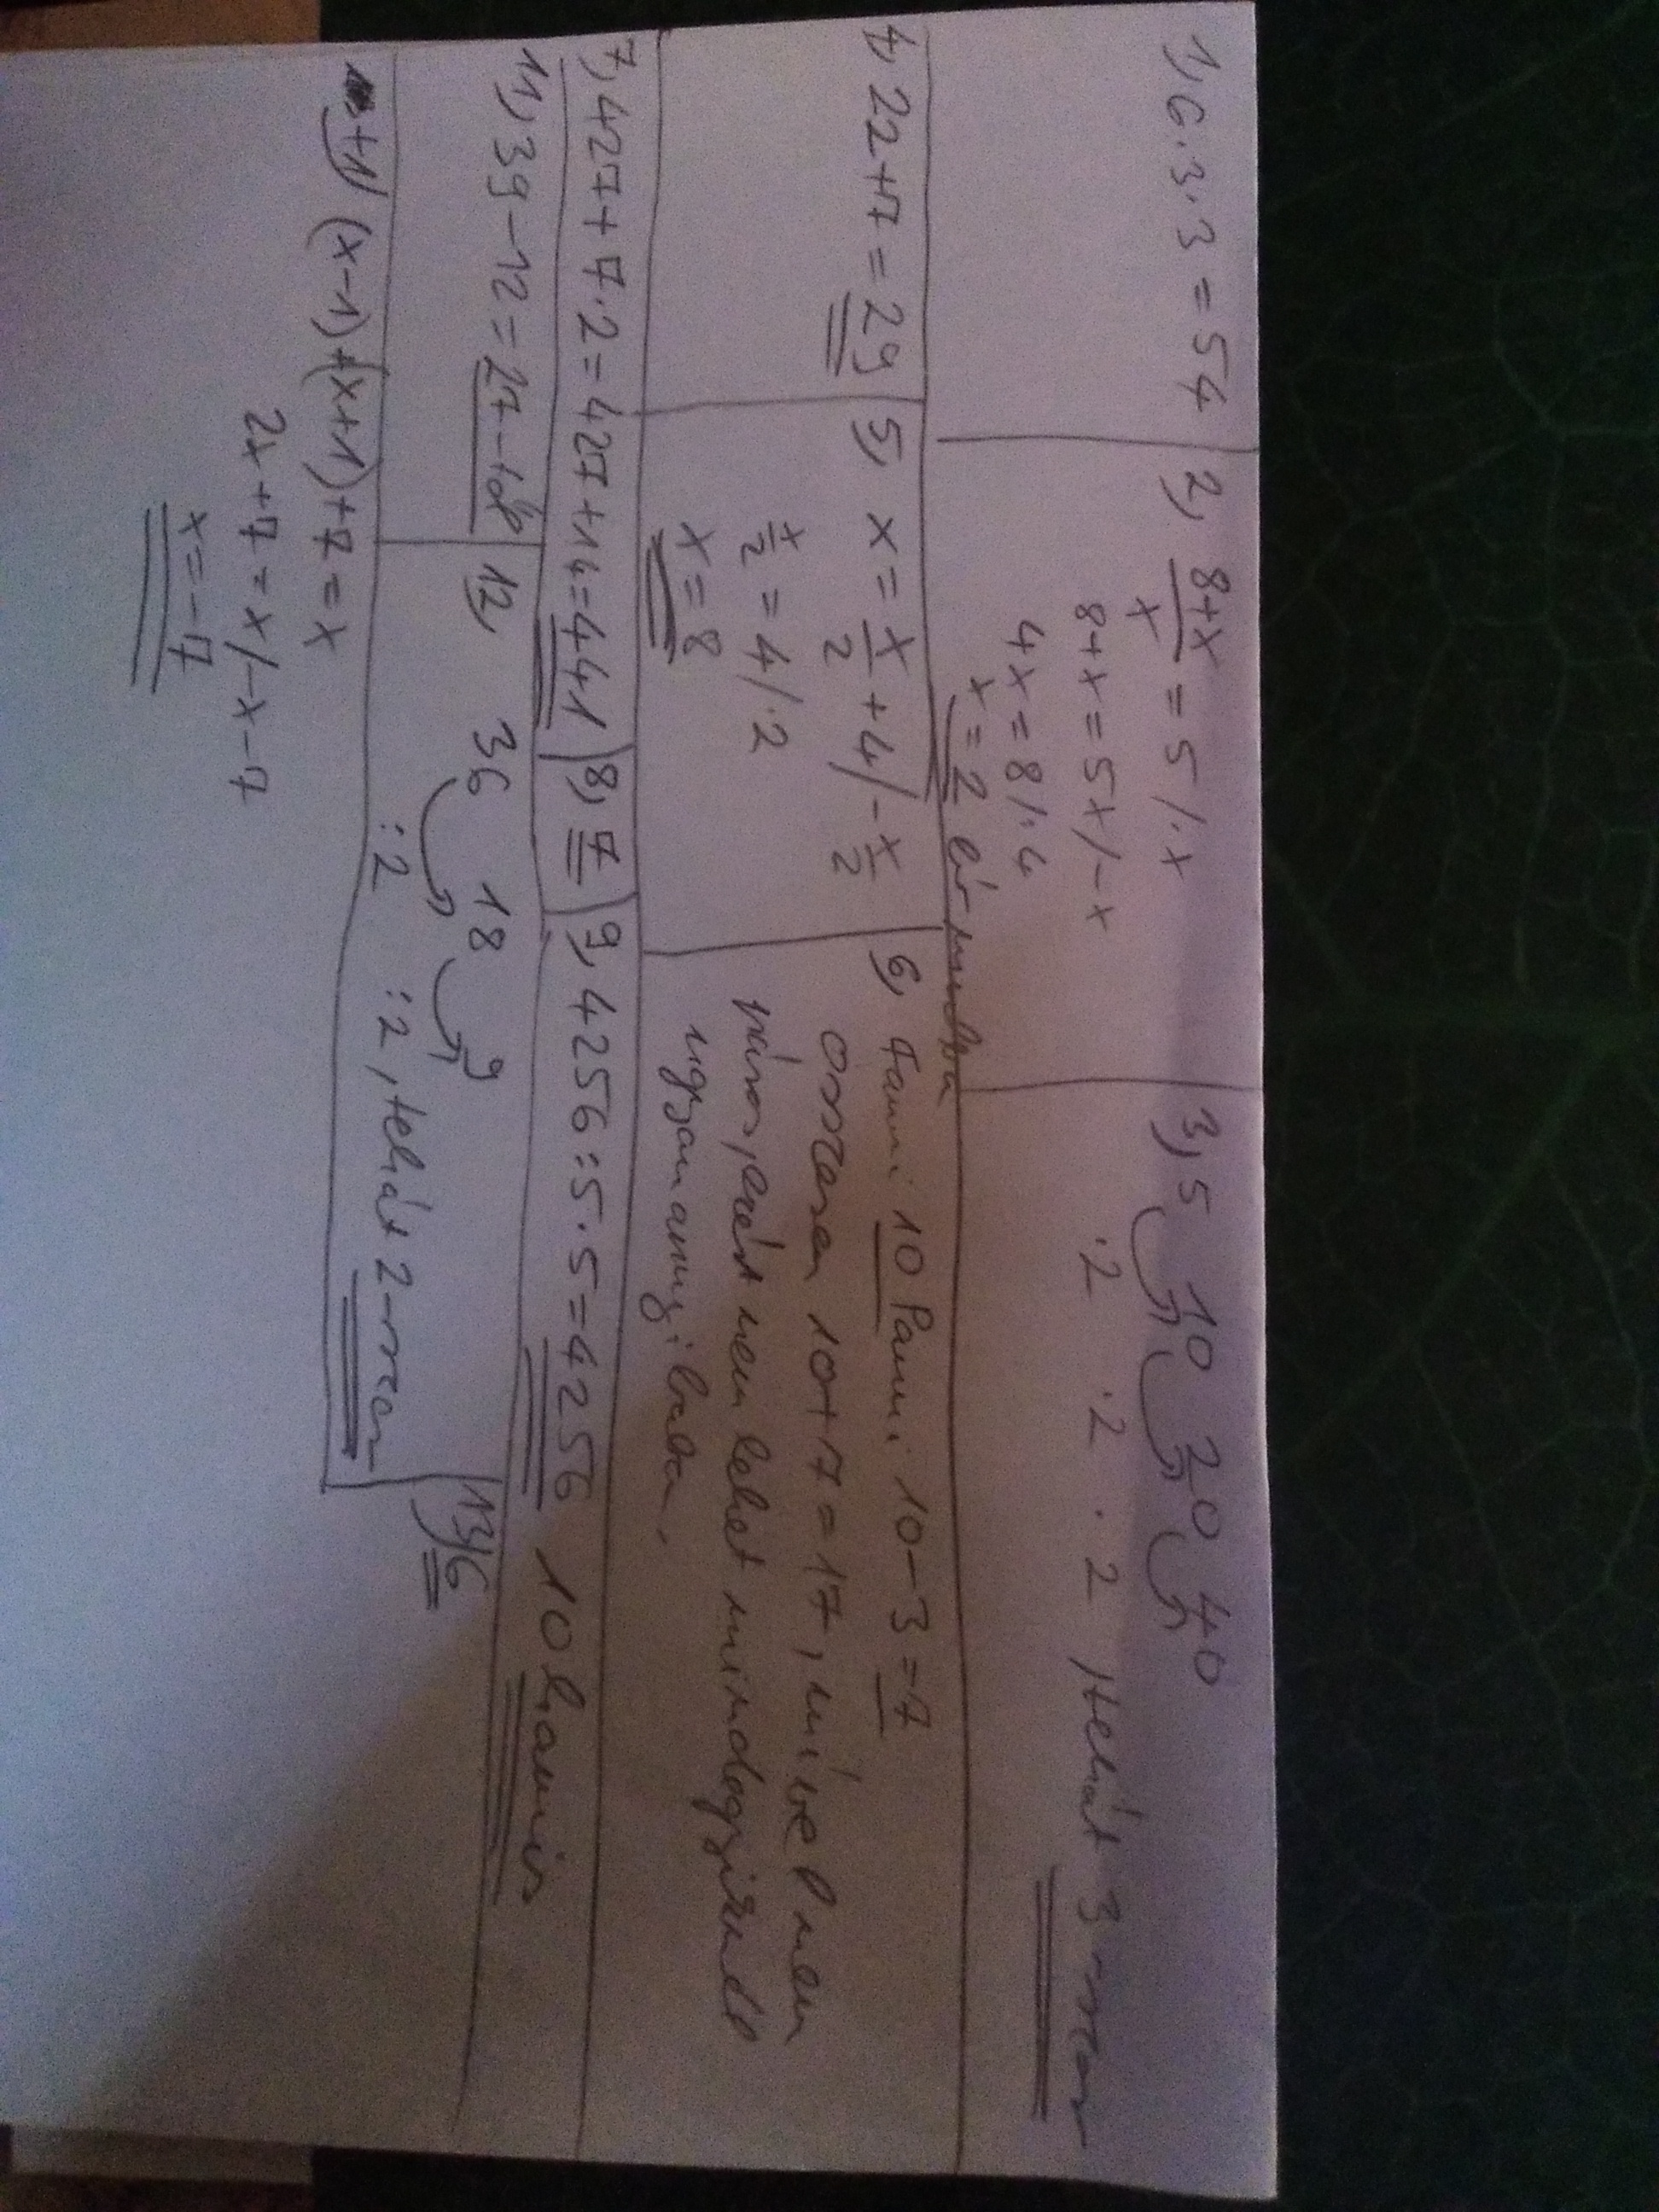 1, 6·3·3=54
2, 8+x/x = 5 /·x
8+x=5x/-x
4x=8/:4
x=2 és mindkra
3, 5 10 20 40
·2 ·2 ·2, tehát 3-szor
4, 22+7=29
5, x = x/2 + 4/-x/2
x/2 = 4/·2
x=8
6, Fanni 10 Panni 10-3=7
összesen 10+7=17, mivel nem
páros, ezért nem lehet mindegyiknek
ugyanannyi baba.
7, 427+7·2=427+14=441
8, 7
9, 4256:5·5=4256 10 hamis
11, 39-12=27-től
12, 36 18 9
:2 :2, tehát 2-szer
13, 6
+1/ (x-1)+(x+1)+7=x
2x+7=x/-x-7
x=-7